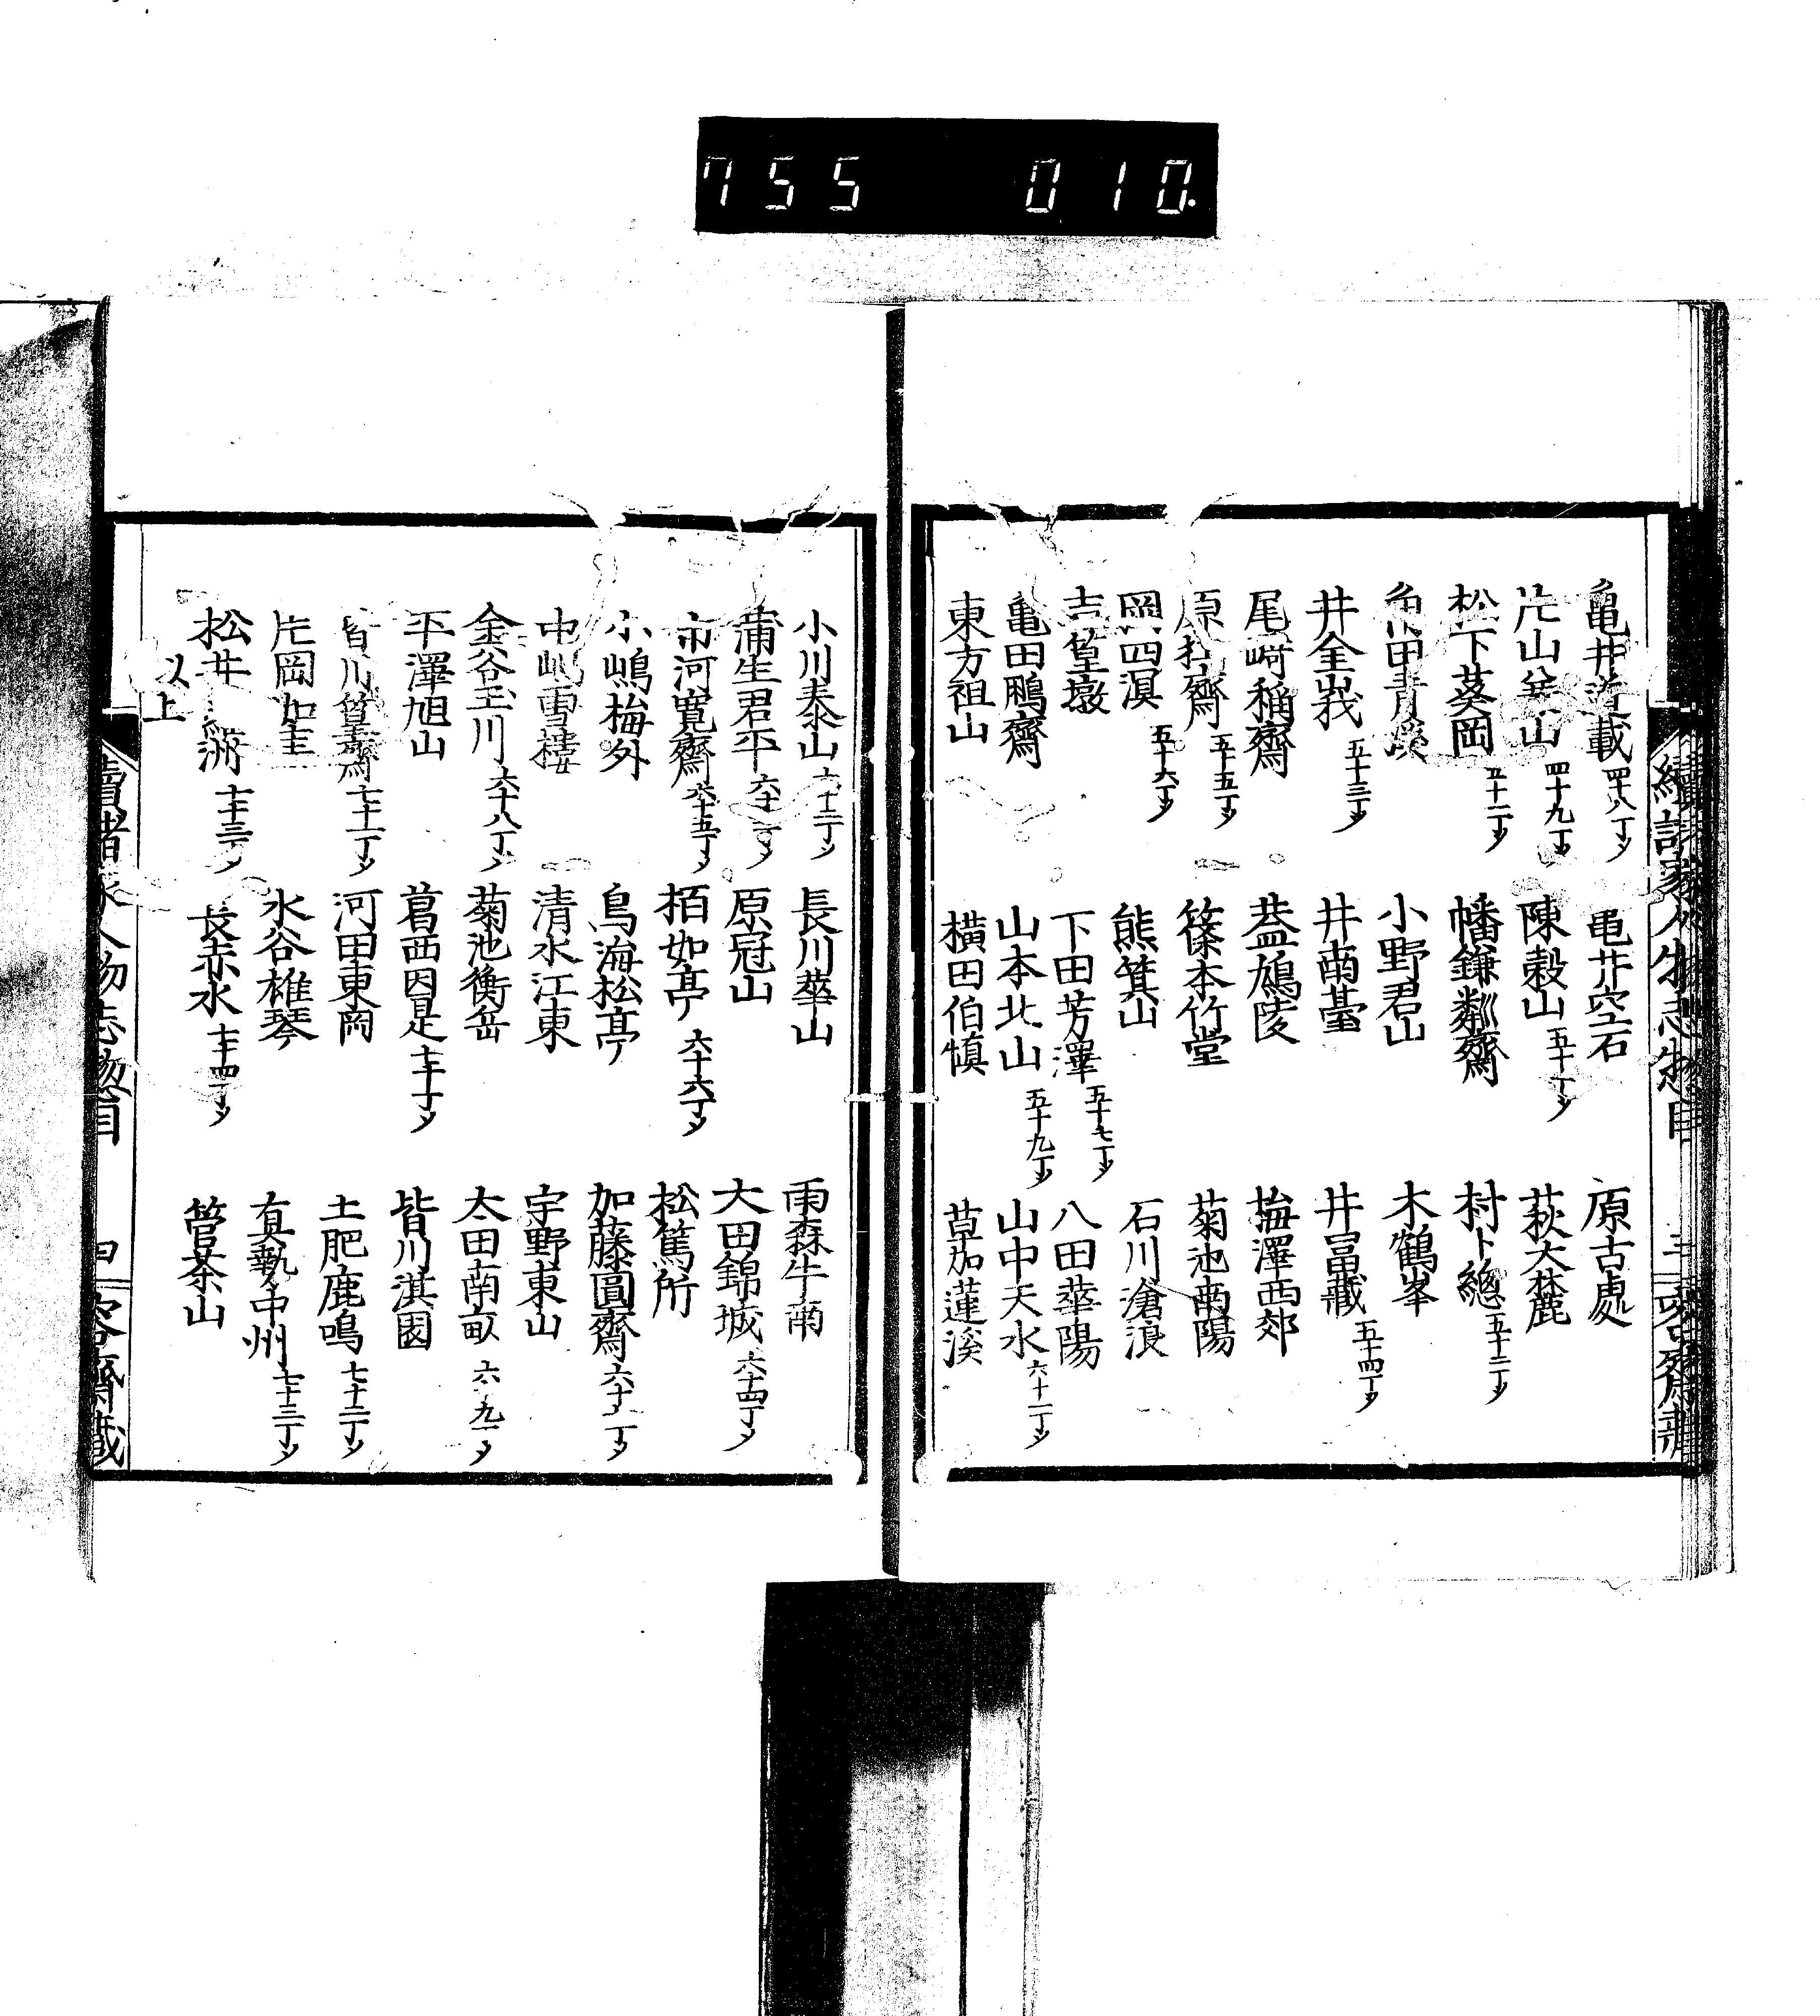 755 010.
亀井道載 四十八丁メ 亀井空石 原古處
片山兼山 四十九丁メ 陳穀山 五十丁メ 萩大麓
松下葵岡 五十一丁メ 幡鎌黎齋 村卜總 五十二丁メ
亀田青渓 小野君山 木鶴峯
井金峩 五十三丁メ 井南臺 井冨藏 五十四丁メ
尾﨑稱齋 葢鳩陵 梅澤西郊
原狂齋 五十五丁メ 篠本竹堂 菊池南陽
岡四溟 五十六丁メ 熊箕山 石川滄浪
吉篁墩 下田芳澤 五十七丁メ 八田華陽
亀田鵬齋 山本北山 五十九丁メ 山中天水 六十一丁メ
東方祖山 横田伯慎 草加蓮溪
小川泰山 六十二丁メ 長川華山 雨森牛南
蒲生君平 原冠山 大田錦城 六十四丁メ
市河寛齋 六十五丁メ 栢如亭 六十六丁メ 松篤所
小嶋梅外 鳥海松亭 加藤圓齋
中嶋雪樓 清水江東 宇野東山
金谷玉川 六十八丁メ 菊池衡岳 太田南畝
平澤旭山 葛西因是 七十丁メ 皆川淇園
皆川篁齋 七十一丁メ 河田東岡 土肥鹿鳴 七十二丁メ
片岡如圭 水谷雄琴 真埶中州 七十三丁メ
松井 七十三丁メ 長赤水 七十四丁メ 管茶山
以上
續諸家人物志惣目 四